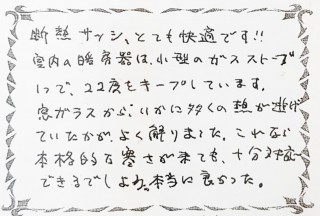 断熱サッシ、とても快適です!!
室内の暖房器は、小型のガスストーブ
1つで、22度をキープしています。
窓ガラスから、いかに多くの熱が逃げ
ていたかが、よく解りました。これなら
本格的な寒さが来ても、十分対応
できるでしょうね。本当に良かった。